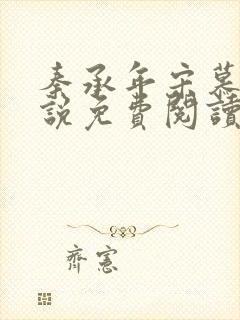 秦承年宋慕
說免費閱讀
齊憲